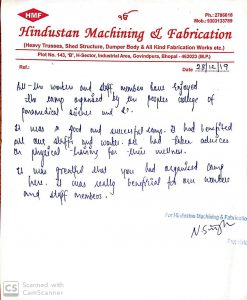 ੴ
HMF
Ph.: 2786618
Mob.: 9303133789
Hindustan Machining & Fabrication
(Heavy Trusses, Shed Structure, Damper Body & All Kind Fabrication Works etc.)
Plot No. 143, 'B', H-Sector, Industrial Area, Govindpura, Bhopal - 462023 (M.P.)
Ref.: Date 28/12/19
All the workers and staff member have enjoyed
the camp organised by the peoples college of
paramedical science and
It was a good and successful camp. it had benefited
all our staffs and workers. we had taken advices
on physical training for their wellness.
it was greatful that you had organised camp
here. it was really beneficial for our workers
and staff members.
For Hindustan Machining & Fabrication
N Singh
CS Scanned with
CamScanner